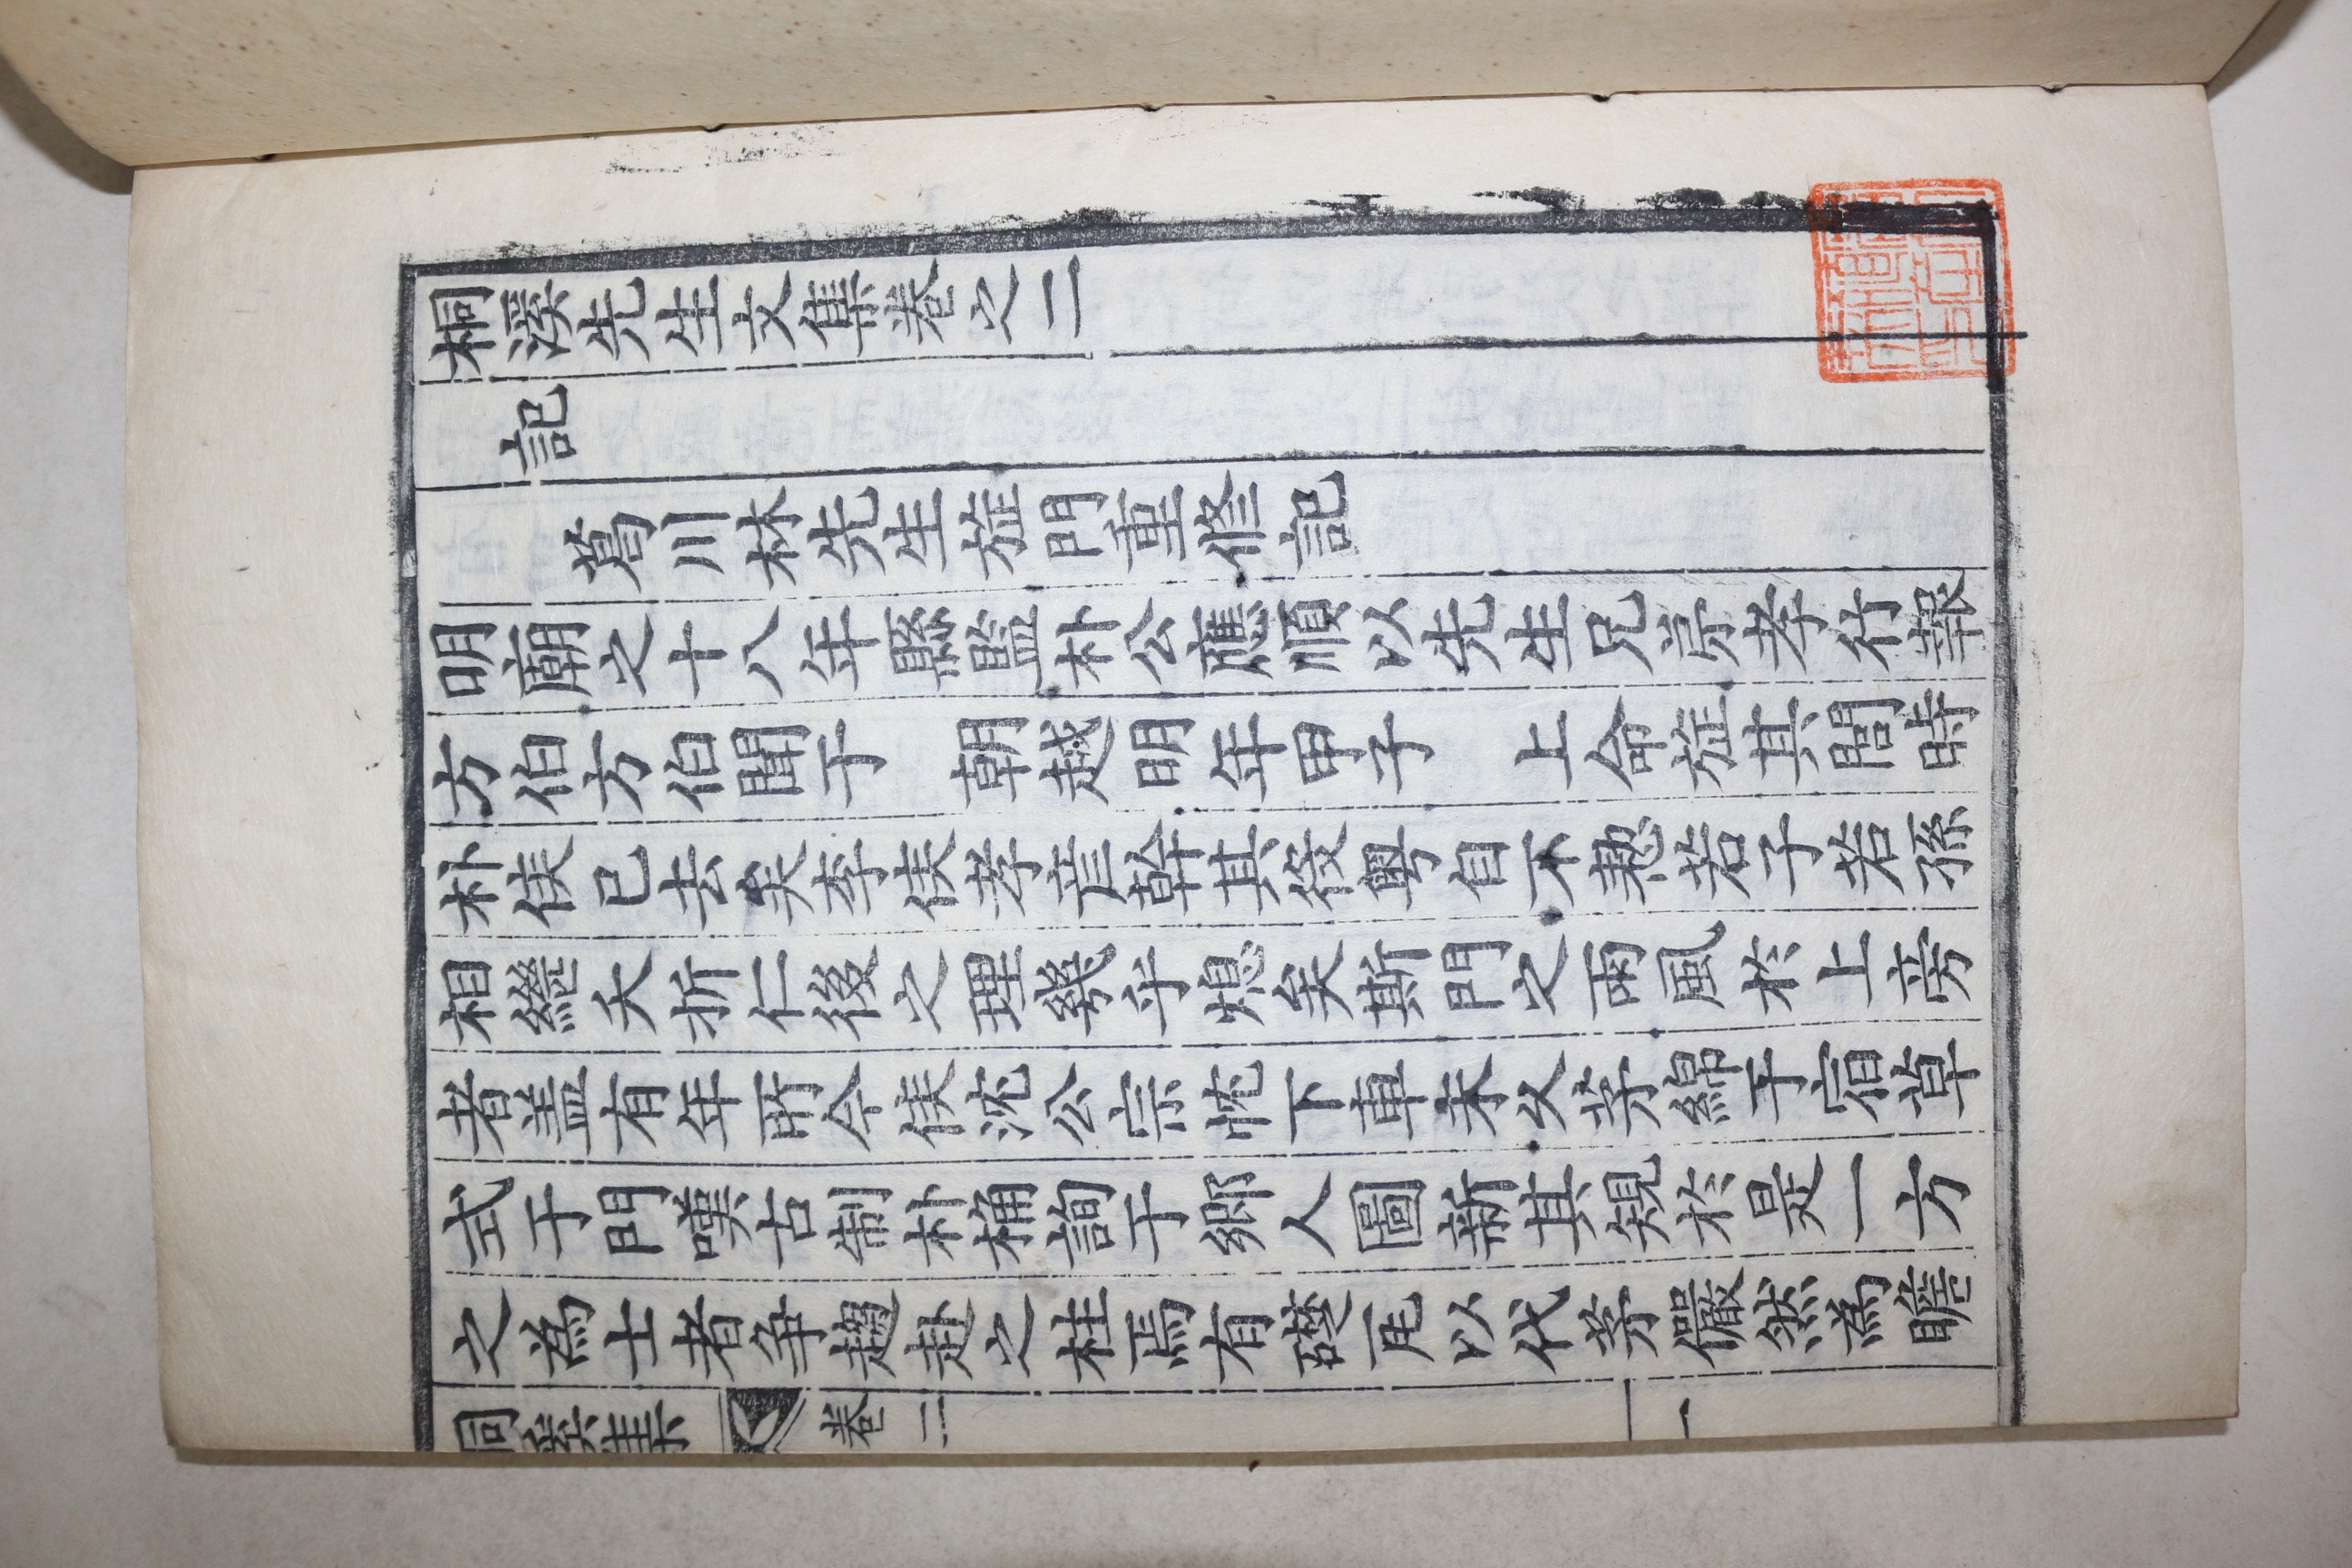 桐溪先生文集卷之二
記
葛川林先生㫌門重修記
明廟之十八年縣監朴公應順以先生兄弟孝行報
方伯方伯聞于　朝越明年甲子　上命㫌其閭時
朴侯已去矣李侯孝㝉幹其役粤自不憖若子若孫
相繼夭折仁後之理幾乎熄矣斯門之雨風於上旁
者盖有年所今侯沈公宗忱下車未久芧綿于宿草
式于門嘆古制朴桷詢于鄉人圖新其規於是一方
之爲士者爭趨赴之柱焉有礎瓦以代茅儼然爲瞻
桐溪集　卷二　一